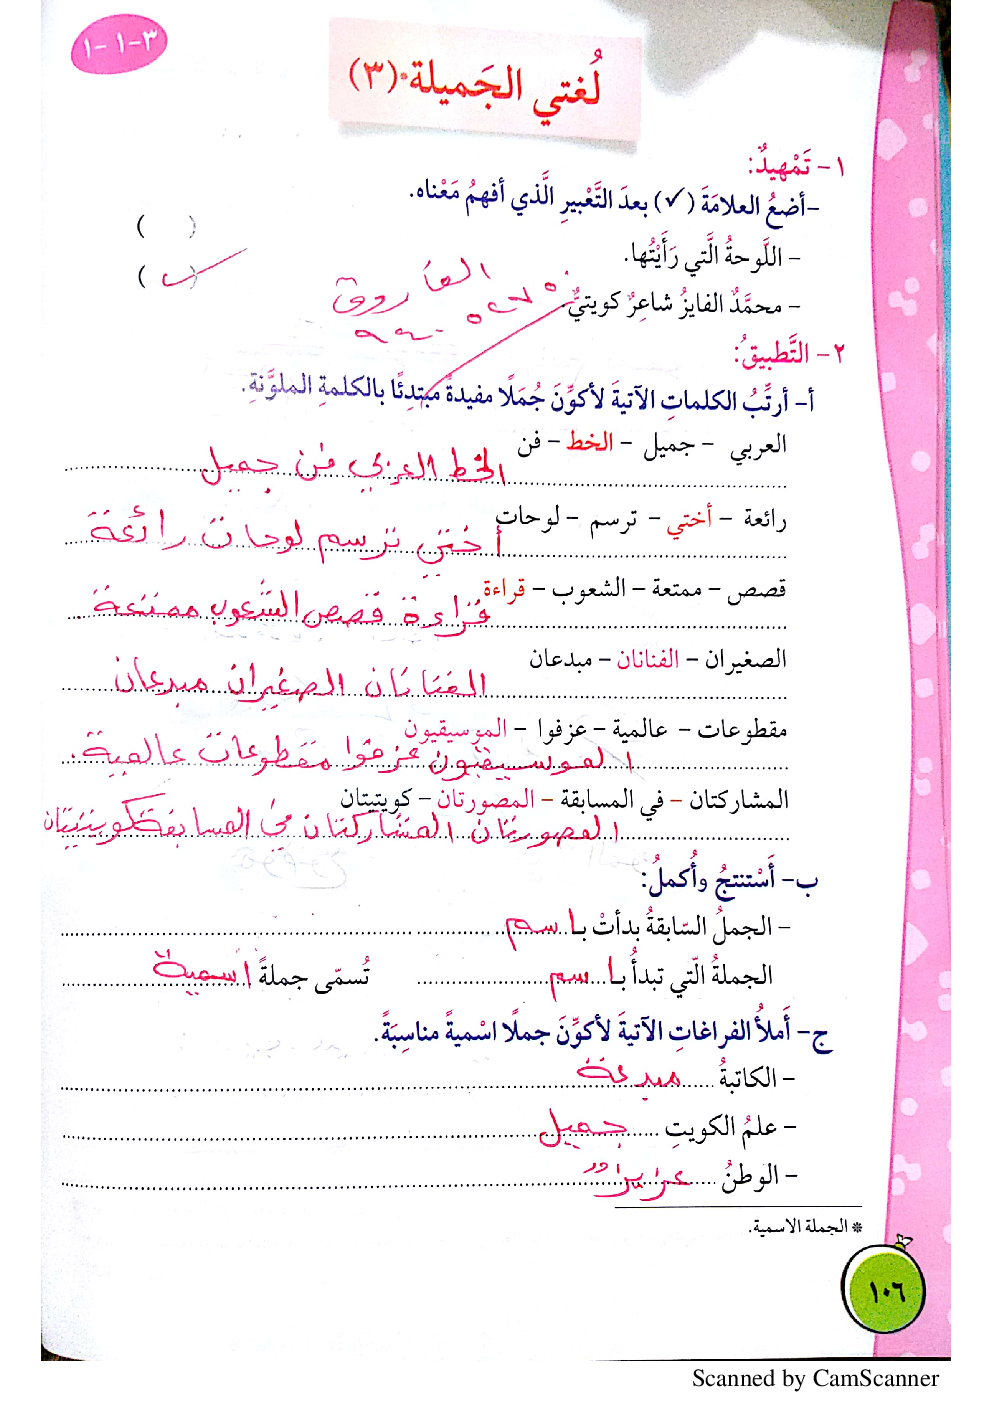 ٣-١-١
لُغتي الجَميلة*(٣)
١- تَمْهيدٌ:
-أضعُ العلامَةَ (✓) بعدَ التَّعْبيرِ الَّذي أفهمُ مَعْناه.
- اللَّوحةُ الَّتي رَأَيْتُها. ( )
- محمَّدٌ الفايزُ شاعِرٌ كويتيٌّ. (✓)
الفاروق
٢- التَّطبيقُ:
أ- أرتِّبُ الكلماتِ الآتيةَ لأكوِّنَ جُمَلًا مفيدةً مبتدِئًا بالكلمةِ الملوَّنةِ.
العربي - جميل - الخط - فن
الخط العربي فن جميل
رائعة - أختي - ترسم - لوحات
أختي ترسم لوحات رائعة
قصص - ممتعة - الشعوب - قراءة
قراءة قصص الشعوب ممتعة
الصغيران - الفنانان - مبدعان
الفنانان الصغيران مبدعان
مقطوعات - عالمية - عزفوا - الموسيقيون
الموسيقيون عزفوا مقطوعات عالمية.
المشاركتان - في المسابقة - المصورتان - كويتيتان
المصورتان المشاركتان في المسابقة كويتيتان
ب- أَسْتنتجُ وأُكملُ:
- الجملُ السّابقةُ بدأتْ بـاسم
الجملةُ الّتي تبدأُ بـاسم تُسمّى جملةً اسمية
ج- أَملأُ الفراغاتِ الآتيةَ لأكوِّنَ جملًا اسْميةً مناسِبَةً.
- الكاتبةُ مبدعة
- علمُ الكويتِ جميل
- الوطنُ عزيز
* الجملة الاسمية.
١٠٦
Scanned by CamScanner